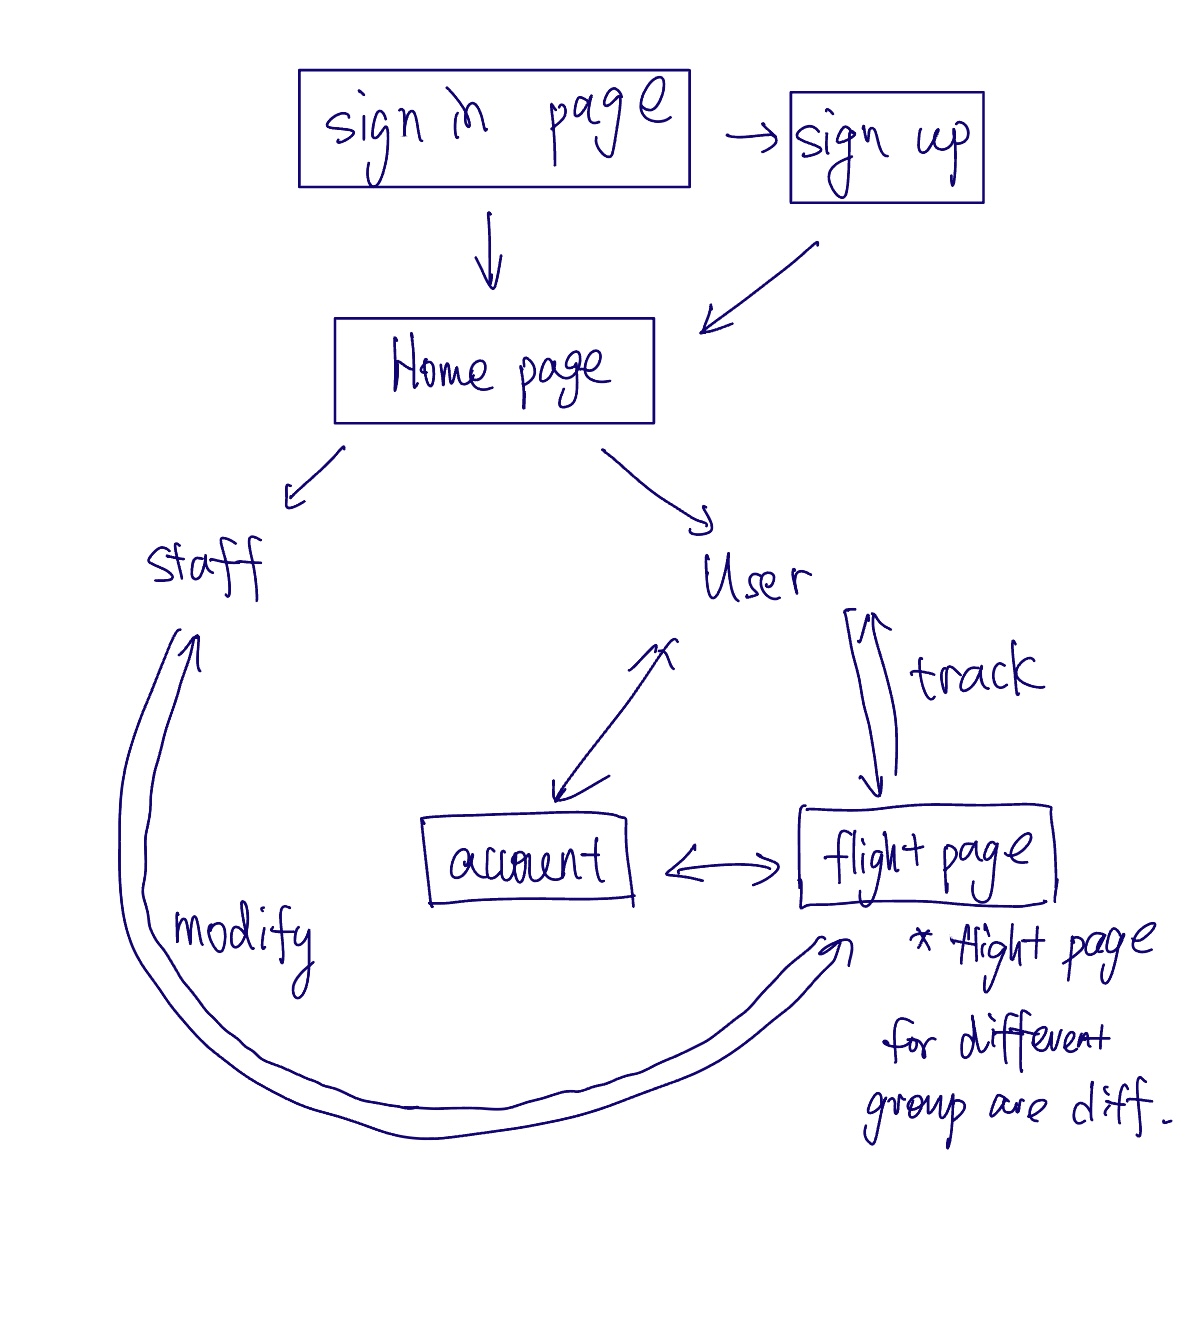 sign in page
sign up
Home page
staff
User
track
account
flight page
modify
* flight page
for different
group are diff.